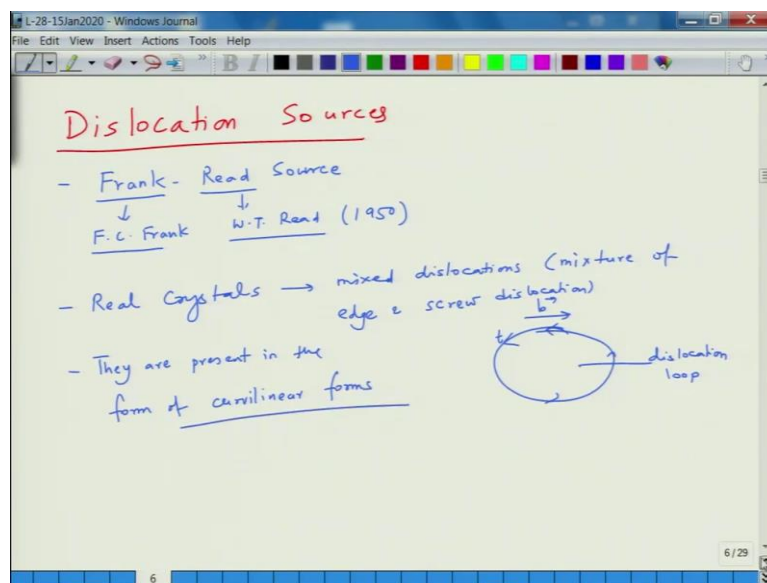 L-28-15Jan2020 - Windows Journal
File Edit View Insert Actions Tools Help
B I
Dislocation Sources
- Frank - Read Source
F.C. Frank W.T. Read (1950)
- Real Crystals → mixed dislocations (mixture of
edge & screw dislocation)
b
t
- They are present in the
form of curvilinear forms
dislocation
loop
6/29
6